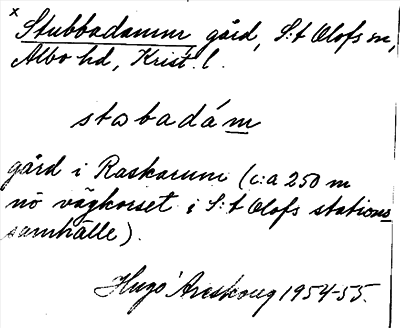 x
Stubbadamm gård, S:t Olofs sn,
Albo hd, Krist. l.
stabadám
gård i Raskarum (c:a 250 m
nö vägkorset i S:t Olofs stations
samhälle).
Hugo Areskoug 1954-55.